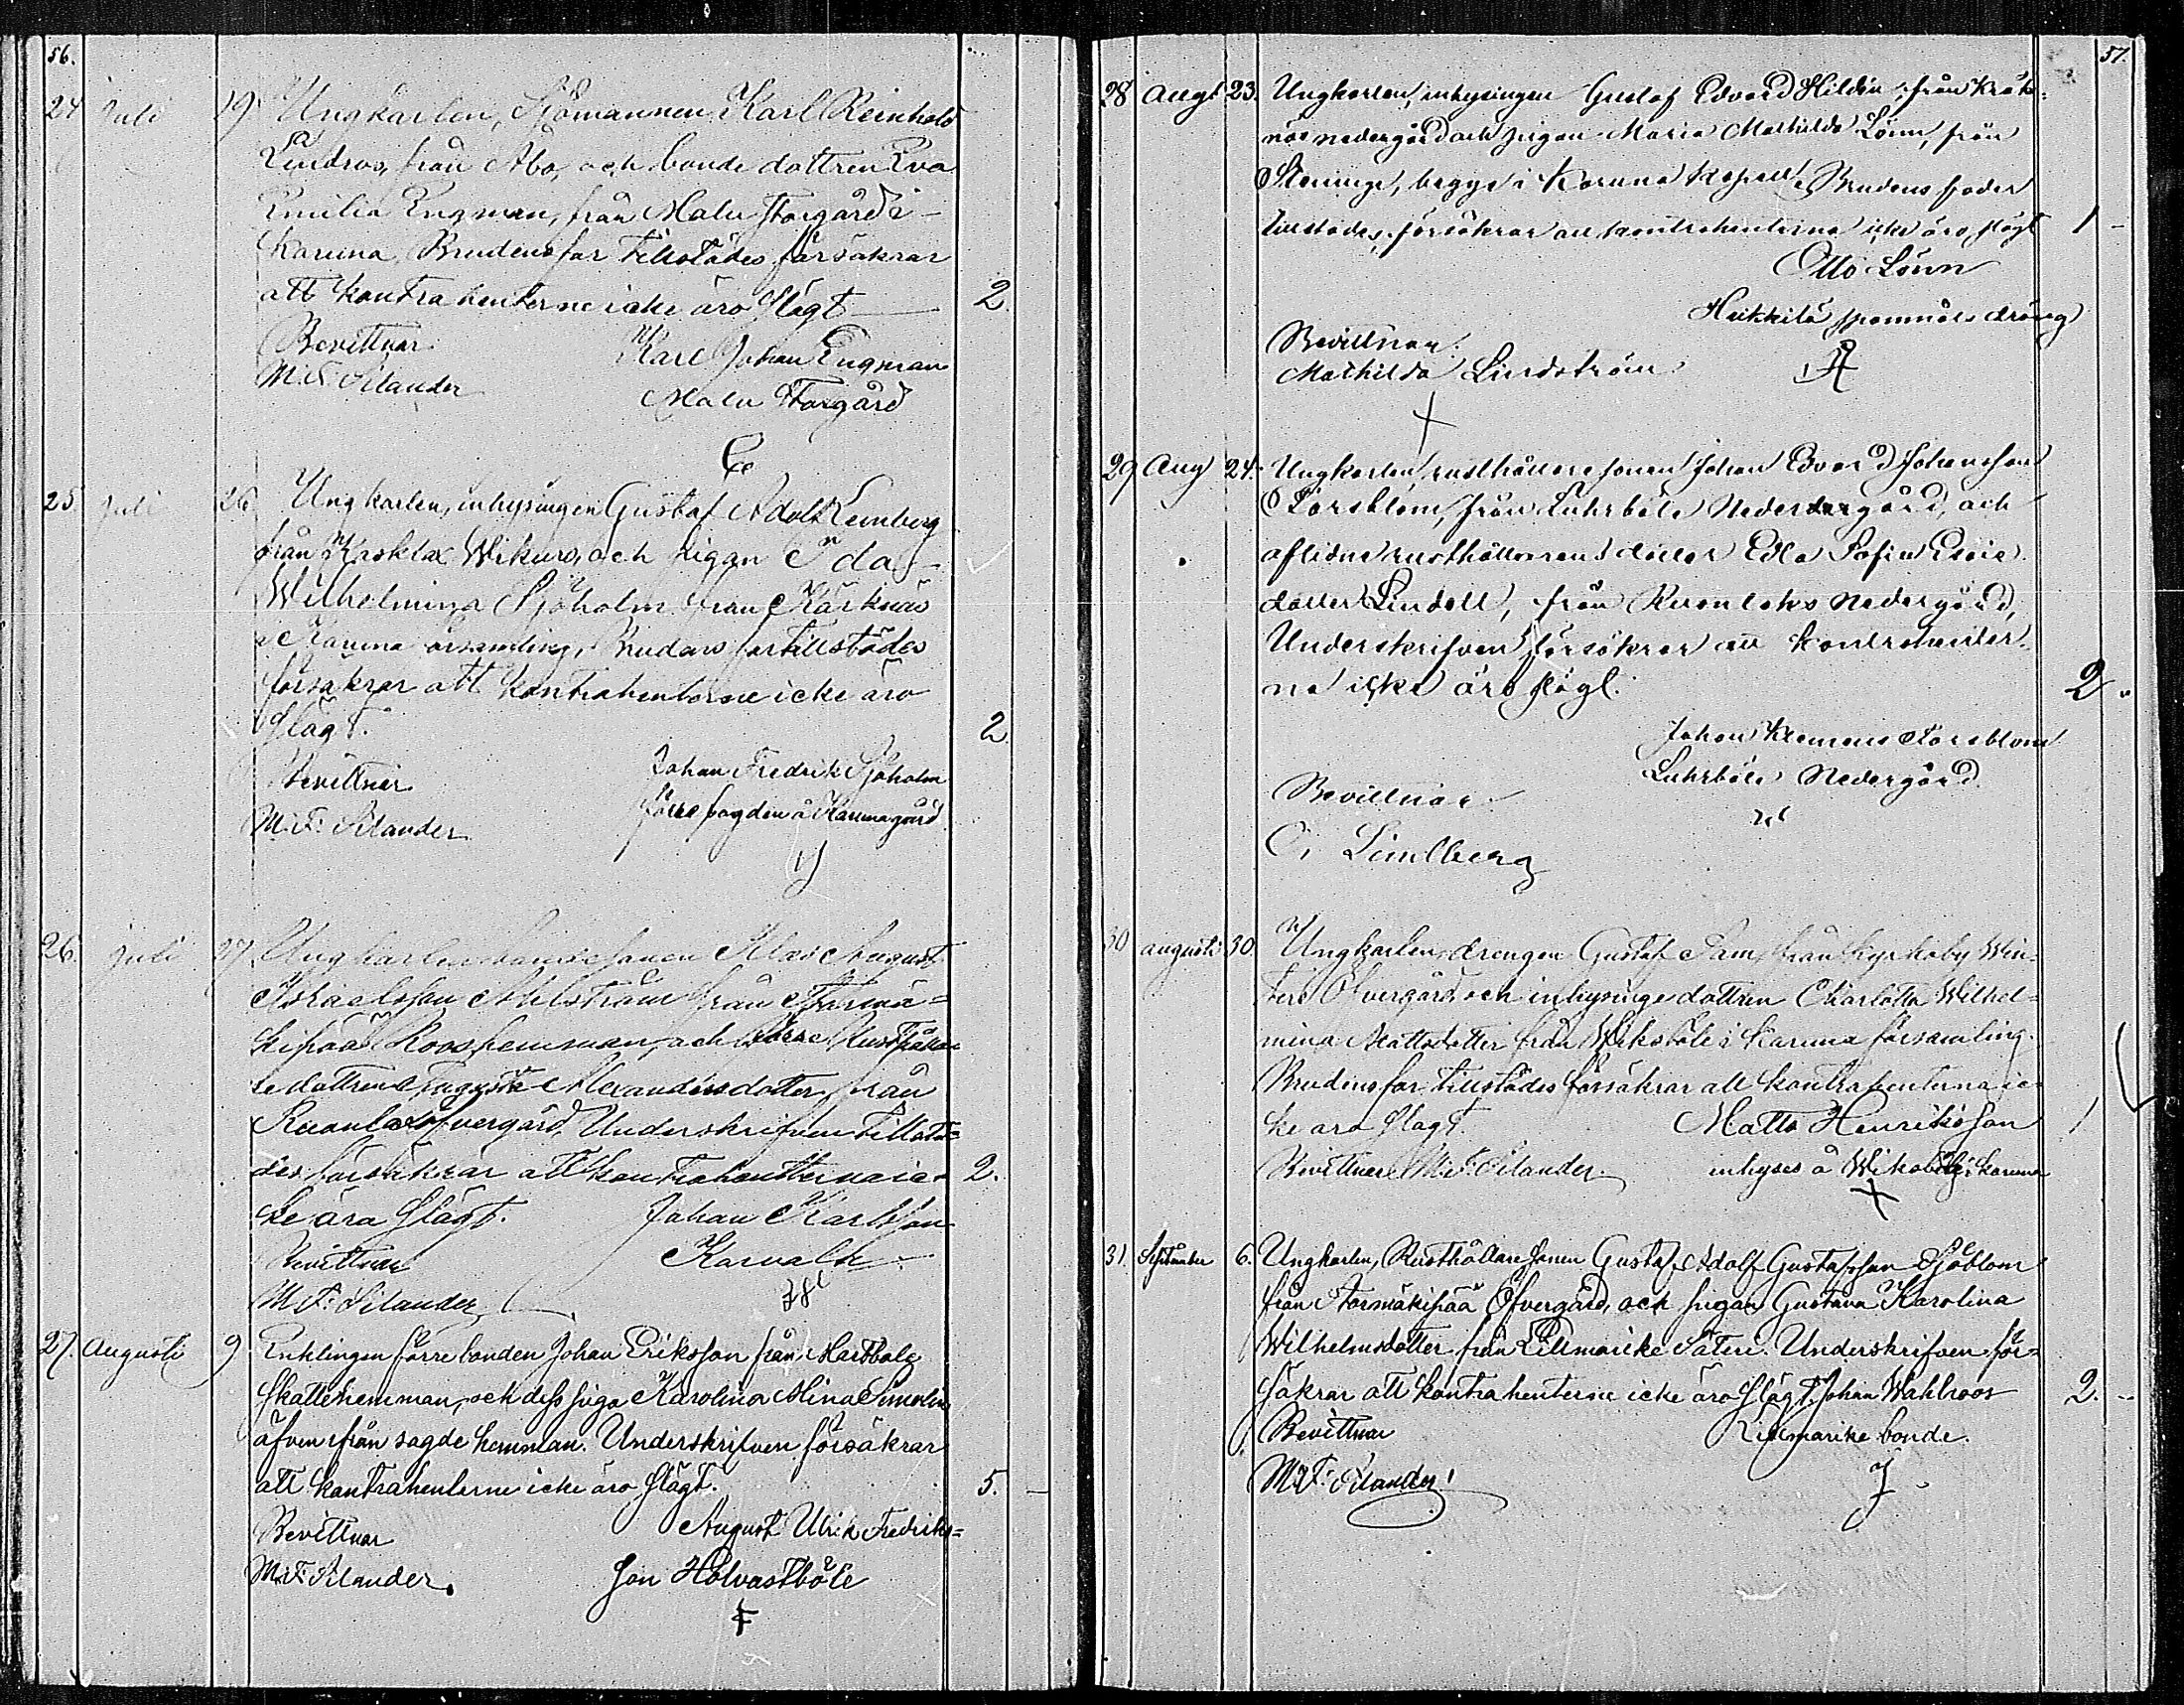 56.
24 Juli 19 Ungkarlen, Sjömannen Karl Reinhold
Lindroos, från Åbo, och bonde dottren Eva
Emilia Engman, från Malu Storgård i
Karuna, Brudens far tillstädes försäkrar
att kontrahenterne icke äro slägt 2
Bevittnar Karl Johan Engman
M. F. Silander Malu Storgård
25 Juli 26 Ungkarlen, inhysingen Gustaf Adolf Remberg
från Kroklax Wikars, och pigan Ida
Wilhelmina Sjöholm från Kärknäs
i Karuna församling, Brudens far tillstädes
försäkrar att kontrahenterne icke äro
slägt. 2
Bevittnar Johan Fredrik Sjöholm
M. F. Silander förre fogden å Karunagård
26. Juli 27 Ungkarlen bondesonen Klas August
Ahlström från Tormä=
kipää Roos hemman, och förre Rusthålla=
re dottren Augusta Alexandersdotter, från
Ruonlax Öfvergård, Underskrifven tillstä=
des försäkrar att kontrahenterna ic= 2.
ke äro slägt. Johan Karlsson
Bevittnar Karvala
M. F. Silander
27. Augusti 9 Enklingen förre bonden Johan Eriksson från Martbole
Skattehemman, och dess piga Karolina Mina Simolin
äfven från sagde hemman. Underskrifven försäkrar
att kontrahenterne icke äro slägt. 5. -
Bevittnar August Ulrik Fredriks=
M. F. Silander. son Holvastböle
57.
28 Aug 23. Ungkarlen, inhysingen Gustaf Edvard Hildén, från Kräk=
näs nedergård och pigan Maria Mathilda Lönn, från
Steninge, begge i Karuna kapell, Brudens fader
tillstädes, försäkrar att kontrahenterna icke äro slägt 1 -
Otto Lönn
Heikkilä dräng
Bevittnar
Mathilda Lindström
29 Aug 24. Ungkarlen, rusthållare sonen Johan Edvard Johansson
Störsblom, från Luhrböle Nedergård, och
aflidne rusthållarens dotter Edla Sofia
dotter Lindell, från Ruonlaks Nedergård,
Underskrifven försäkrar att kontrahenter=
na icke äro slägt. 2.
Johan Klemens Störsblom
Luhrböle Nedergård
Bevittnar
O. Lindberg
30 augusti 30. Ungkarlen, drengen Gustaf Sam, från Kyrkoby Win=
Öfvergård, och inhysinge dottren Charlotta Wilhel=
mina Mattsdotter från Wiksböle i Karuna församling.
Brudens far tillstädes försäkrar att kontrahenterna ic=
ke äro slägt. Matts Henriksson 1
Bevittnar M. F. Silander. inhyses å Wiksböle i Karuna
31. September 6. Ungkarlen, Rusthållare sonen Gustaf Adolf Gustafsson Sjöblom
från Tormäkipää Öfvergård, och pigan Gustava Karolina
Wilhelmsdotter från Rillmarike Säteri. Underskrifven för=
säkrar att kontrahenterne icke äro slägt. Johan Wahlroos 2. -
Bevittnar Rillmarike bonde.
M. F. Silander!